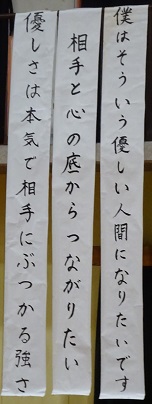 僕はそういう優しい人間になりたいです
相手と心の底からつながりたい
優しさは本気で相手にぶつかる強さ